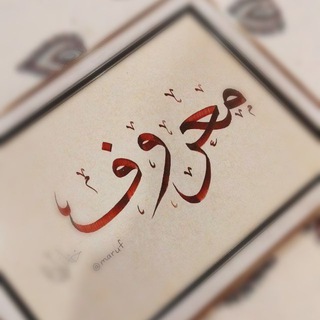 معروف
@maruf